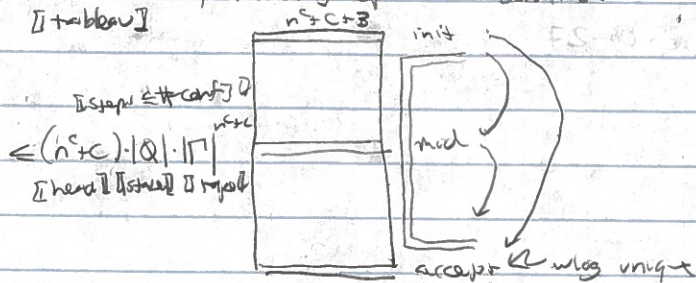 [[tableau]]
n^c + C + 3
init
[[steps ≤ # conf]]
mid
≤ (n^c+C)·|Q|·|Γ|^{n^c+C}
[[head]] [[state]] [[tape]]
accept wlog unique